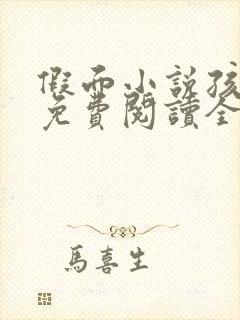 假面小说孩
免费阅读全
馬喜生